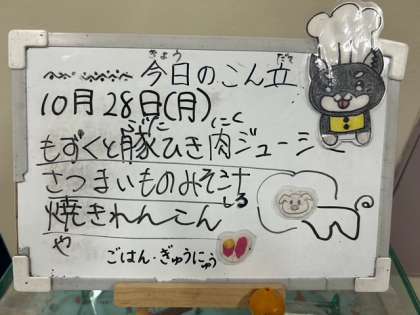 きょう だて
今日のこん立
10月28日(月)
ぶた にく
もずくと豚ひき肉ジューシー
さつまいものみそ汁
しる
焼きれんこん
や
ごはん・ぎゅうにゅう